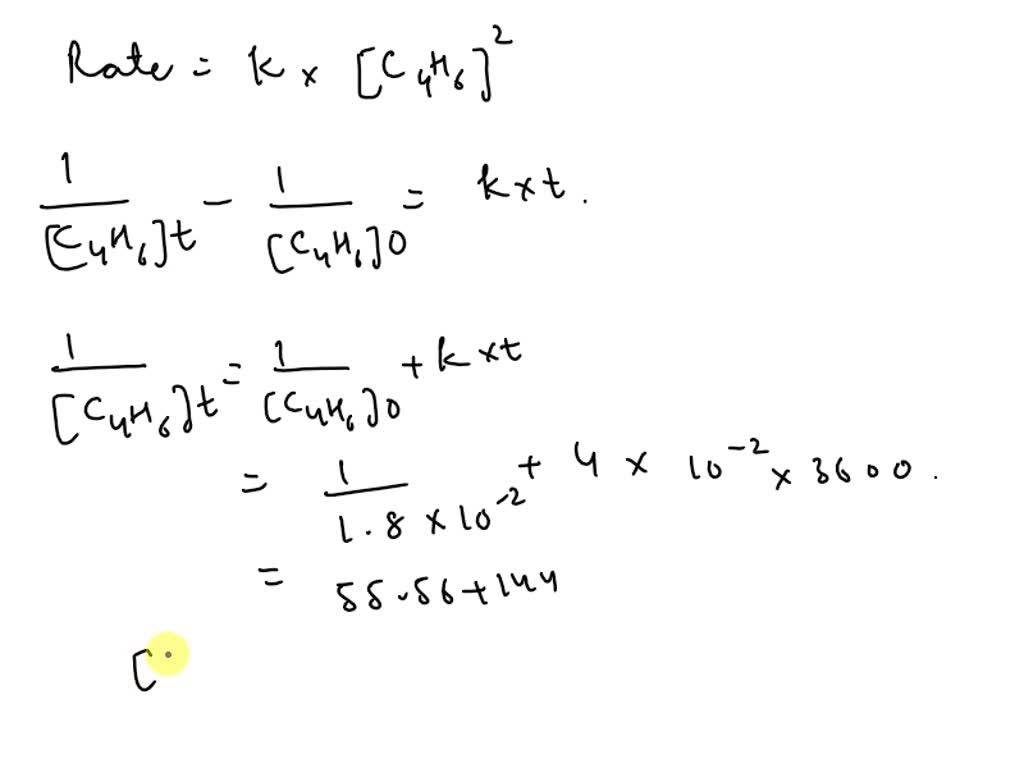 Rate = k × [C₄H₆]²
1/[C₄H₆]t - 1/[C₄H₆]0 = k×t.
1/[C₄H₆]t = 1/[C₄H₆]0 + k×t
= 1/1.8×10⁻² + 4 × 10⁻² × 3600.
= 55.56+144
[